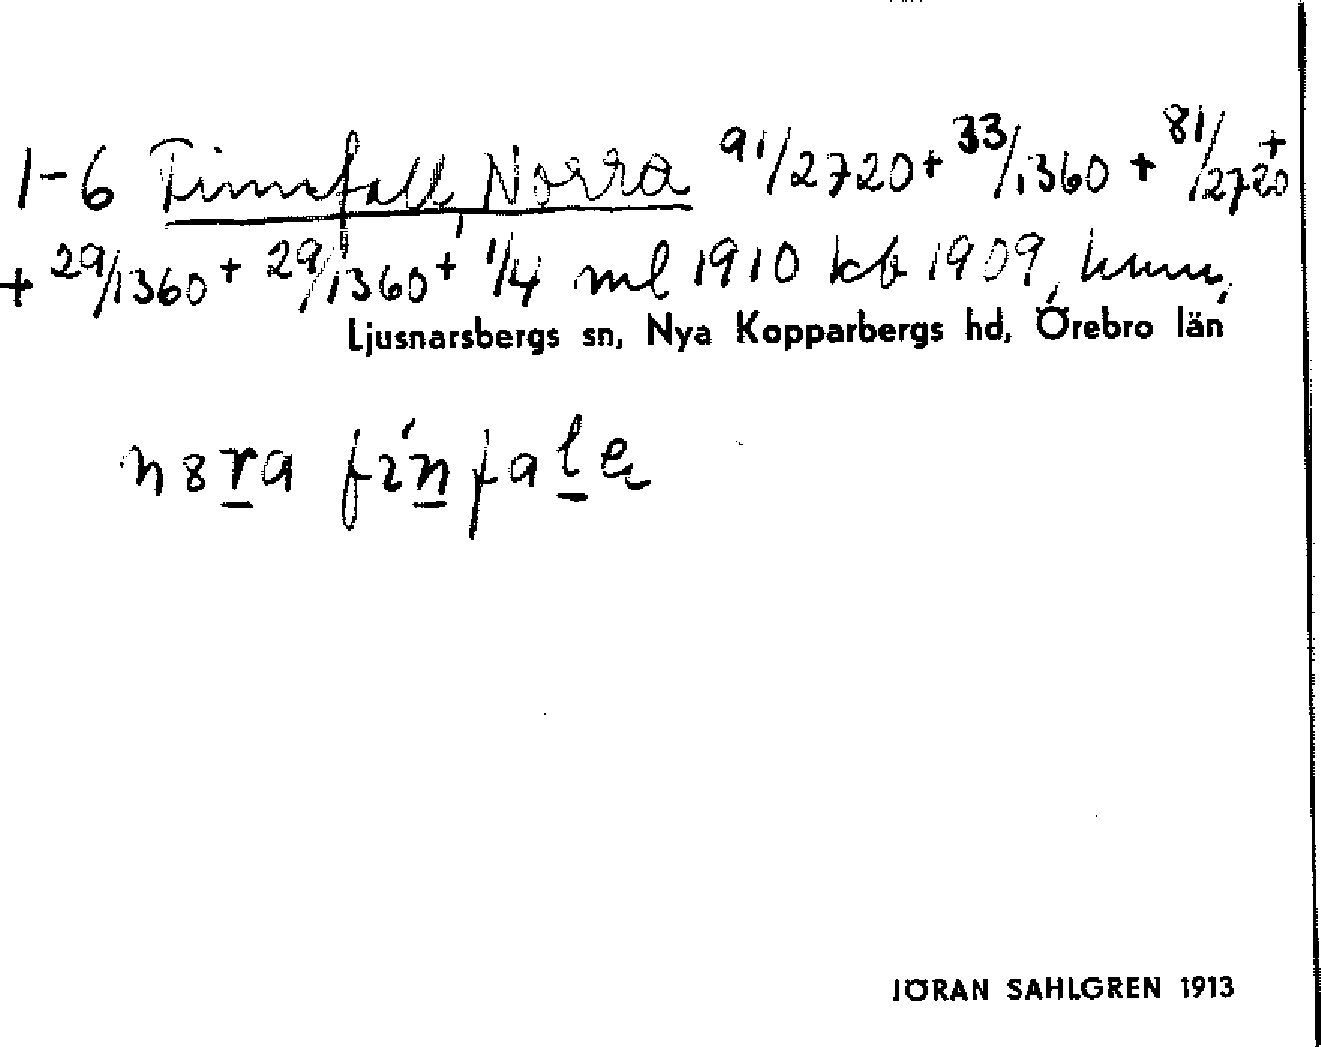 1-6 Finnfall, Norra 91/2720 + 33/1360 + 81/2720 +
+ 29/1360 + 29/1360 + 1/4 ml 1910 kb 1909,
Ljusnarsbergs sn, Nya Kopparbergs hd, Örebro län
n8ra fínfale
JÖRAN SAHLGREN 1913